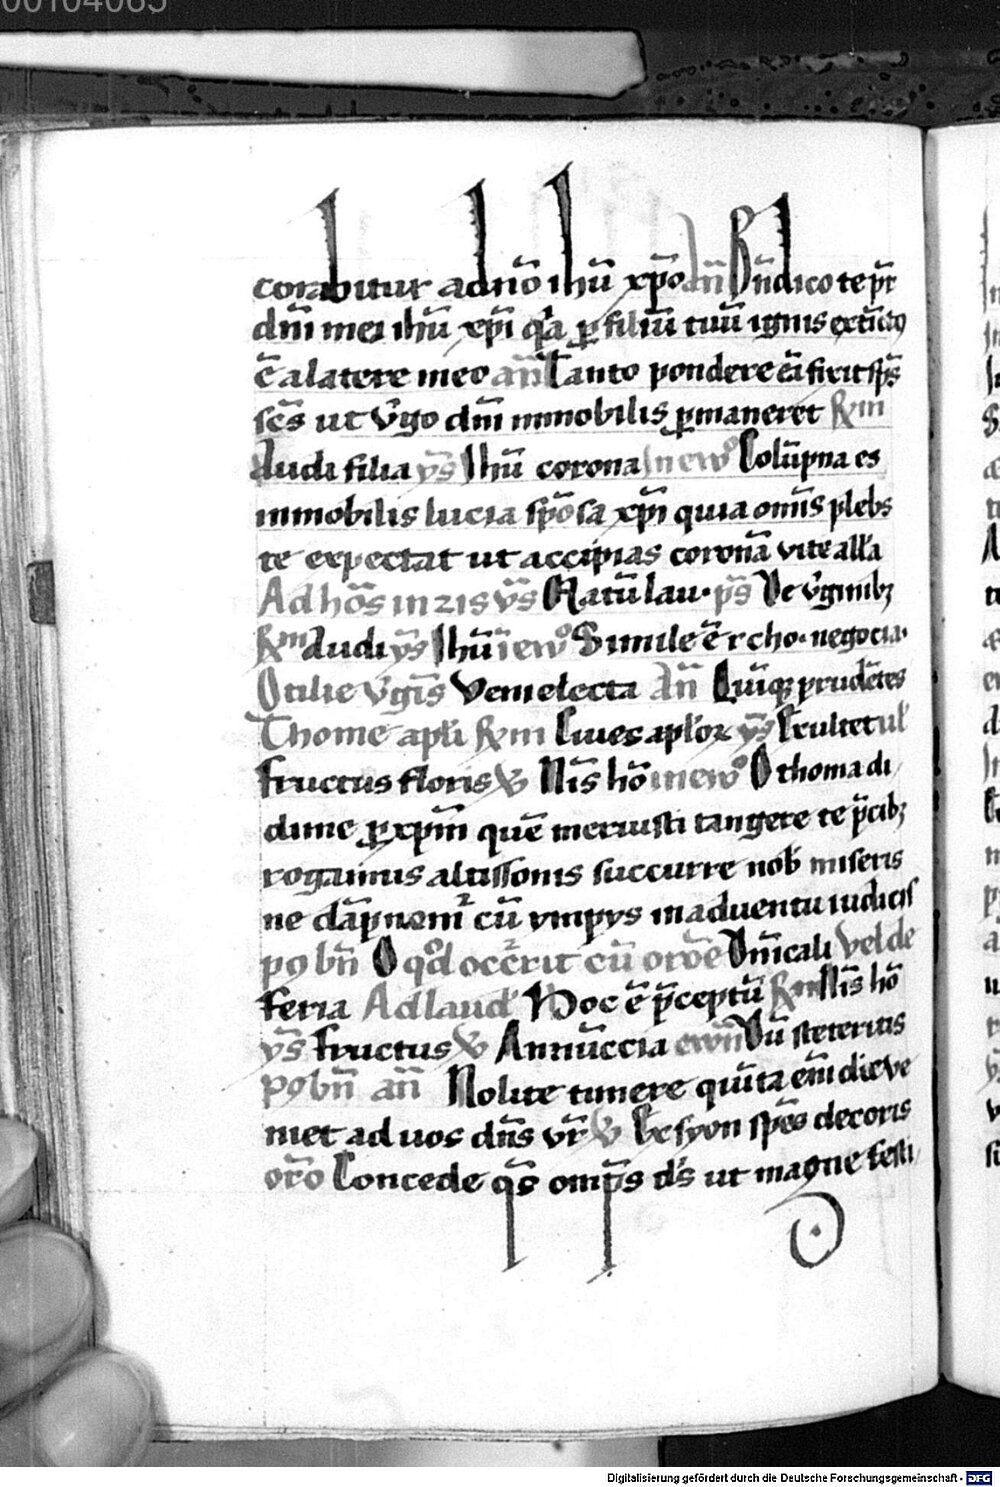 00104065
corabitur a dño ihū xp̄o añ Bñdico te pr̄
dñi mei ihū xp̄i q̄a p̱ filiū tuū ignis extīcto
ē a latere meo añ Tanto pondere eā fixit sp̄s
sc̄s ut v̄go dñi immobilis p̱maneret R̄m
Audi filia ys̄ Ihū corona in ewº Colūpna es
immobilis lucia spōsa xp̄i quia om̄is plebs
te expectat ut accipias coronā vite all'a
Ad hōs in zis v̄s Matū lau. ps̄ De v̄ginibꝫ
R̄m Audi ys̄ Ihū ī ewº Simile ē r cho. negocia.
Otilie v̄gīs Veni electa añ Quīqꝫ prudētes
Thome apl̄i R̄m Ciues apl̄oꝝ ys̄ Exultet ul'
fructus floris W Nīs hō in ewº O thoma di
dime p̱ xp̄m quē meruisti tangere te p̄cibꝫ
rogamus altissonis succurre nob̄ miseris
ne dāpnemr̉ cū ympys in aduentu iudicis
p9 bñ O qd̄ occ̄rit cū orōe Dñicali vel de
feria Ad laud' Hoc ē p̄ceptū R̄m Nīs hō
ys̄ fructus W Annūccia ewñ Dū steteritis
p9 bñ añ Nolite timere quīta em̄ die ve
niet ad uos dñs vr̄ W Ex syon spēs decoris
orō Concede qs̄ omp̄s ds̄ ut magne festi
Digitalisierung gefördert durch die Deutsche Forschungsgemeinschaft - DFG